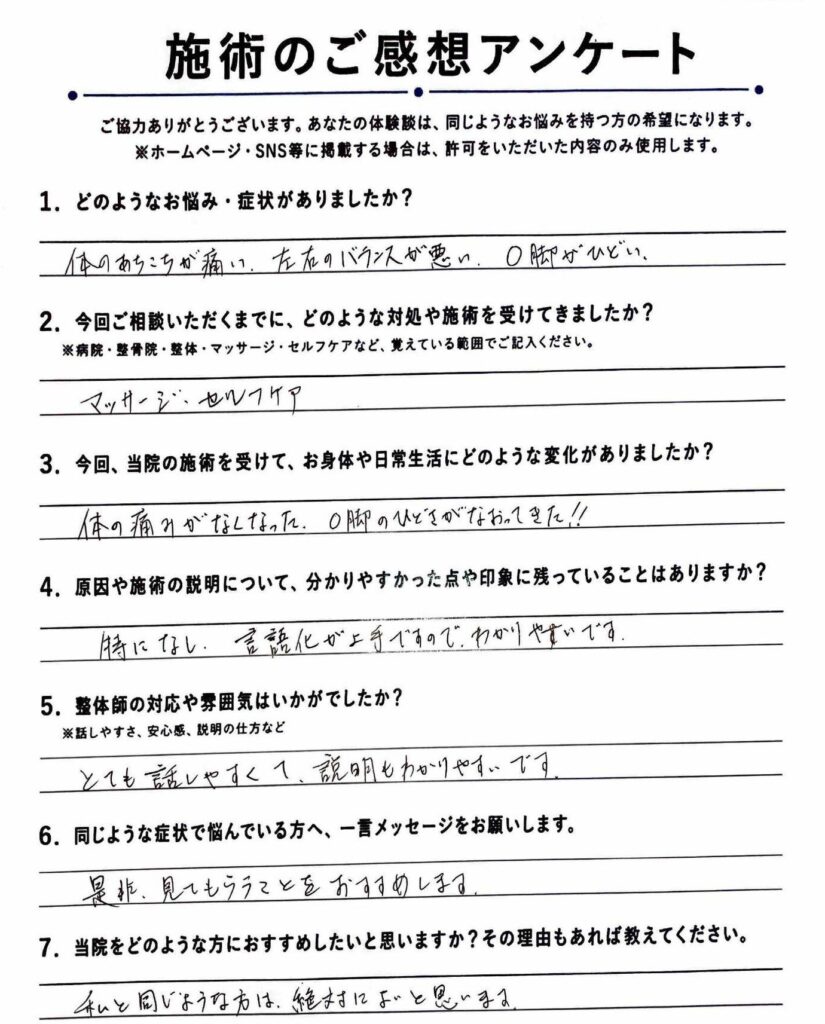 施術のご感想アンケート
ご協力ありがとうございます。あなたの体験談は、同じようなお悩みを持つ方の希望になります。
※ホームページ・SNS等に掲載する場合は、許可をいただいた内容のみ使用します。
1. どのようなお悩み・症状がありましたか？
体のあちこちが痛い、左右のバランスが悪い、O脚がひどい、
2. 今回ご相談いただくまでに、どのような対処や施術を受けてきましたか？
※病院・整骨院・整体・マッサージ・セルフケアなど、覚えている範囲でご記入ください。
マッサージ、セルフケア
3. 今回、当院の施術を受けて、お身体や日常生活にどのような変化がありましたか？
体の痛みがなくなった、O脚のひどさがなおってきた!!
4. 原因や施術の説明について、分かりやすかった点や印象に残っていることはありますか？
特になし、言語化が上手ですので、わかりやすいです。
5. 整体師の対応や雰囲気はいかがでしたか？
※話しやすさ、安心感、説明の仕方など
とても話しやすくて、説明もわかりやすいです。
6. 同じような症状で悩んでいる方へ、一言メッセージをお願いします。
是非、見てもらうことをおすすめします。
7. 当院をどのような方におすすめしたいと思いますか？その理由もあれば教えてください。
私と同じような方は、絶対によいと思います